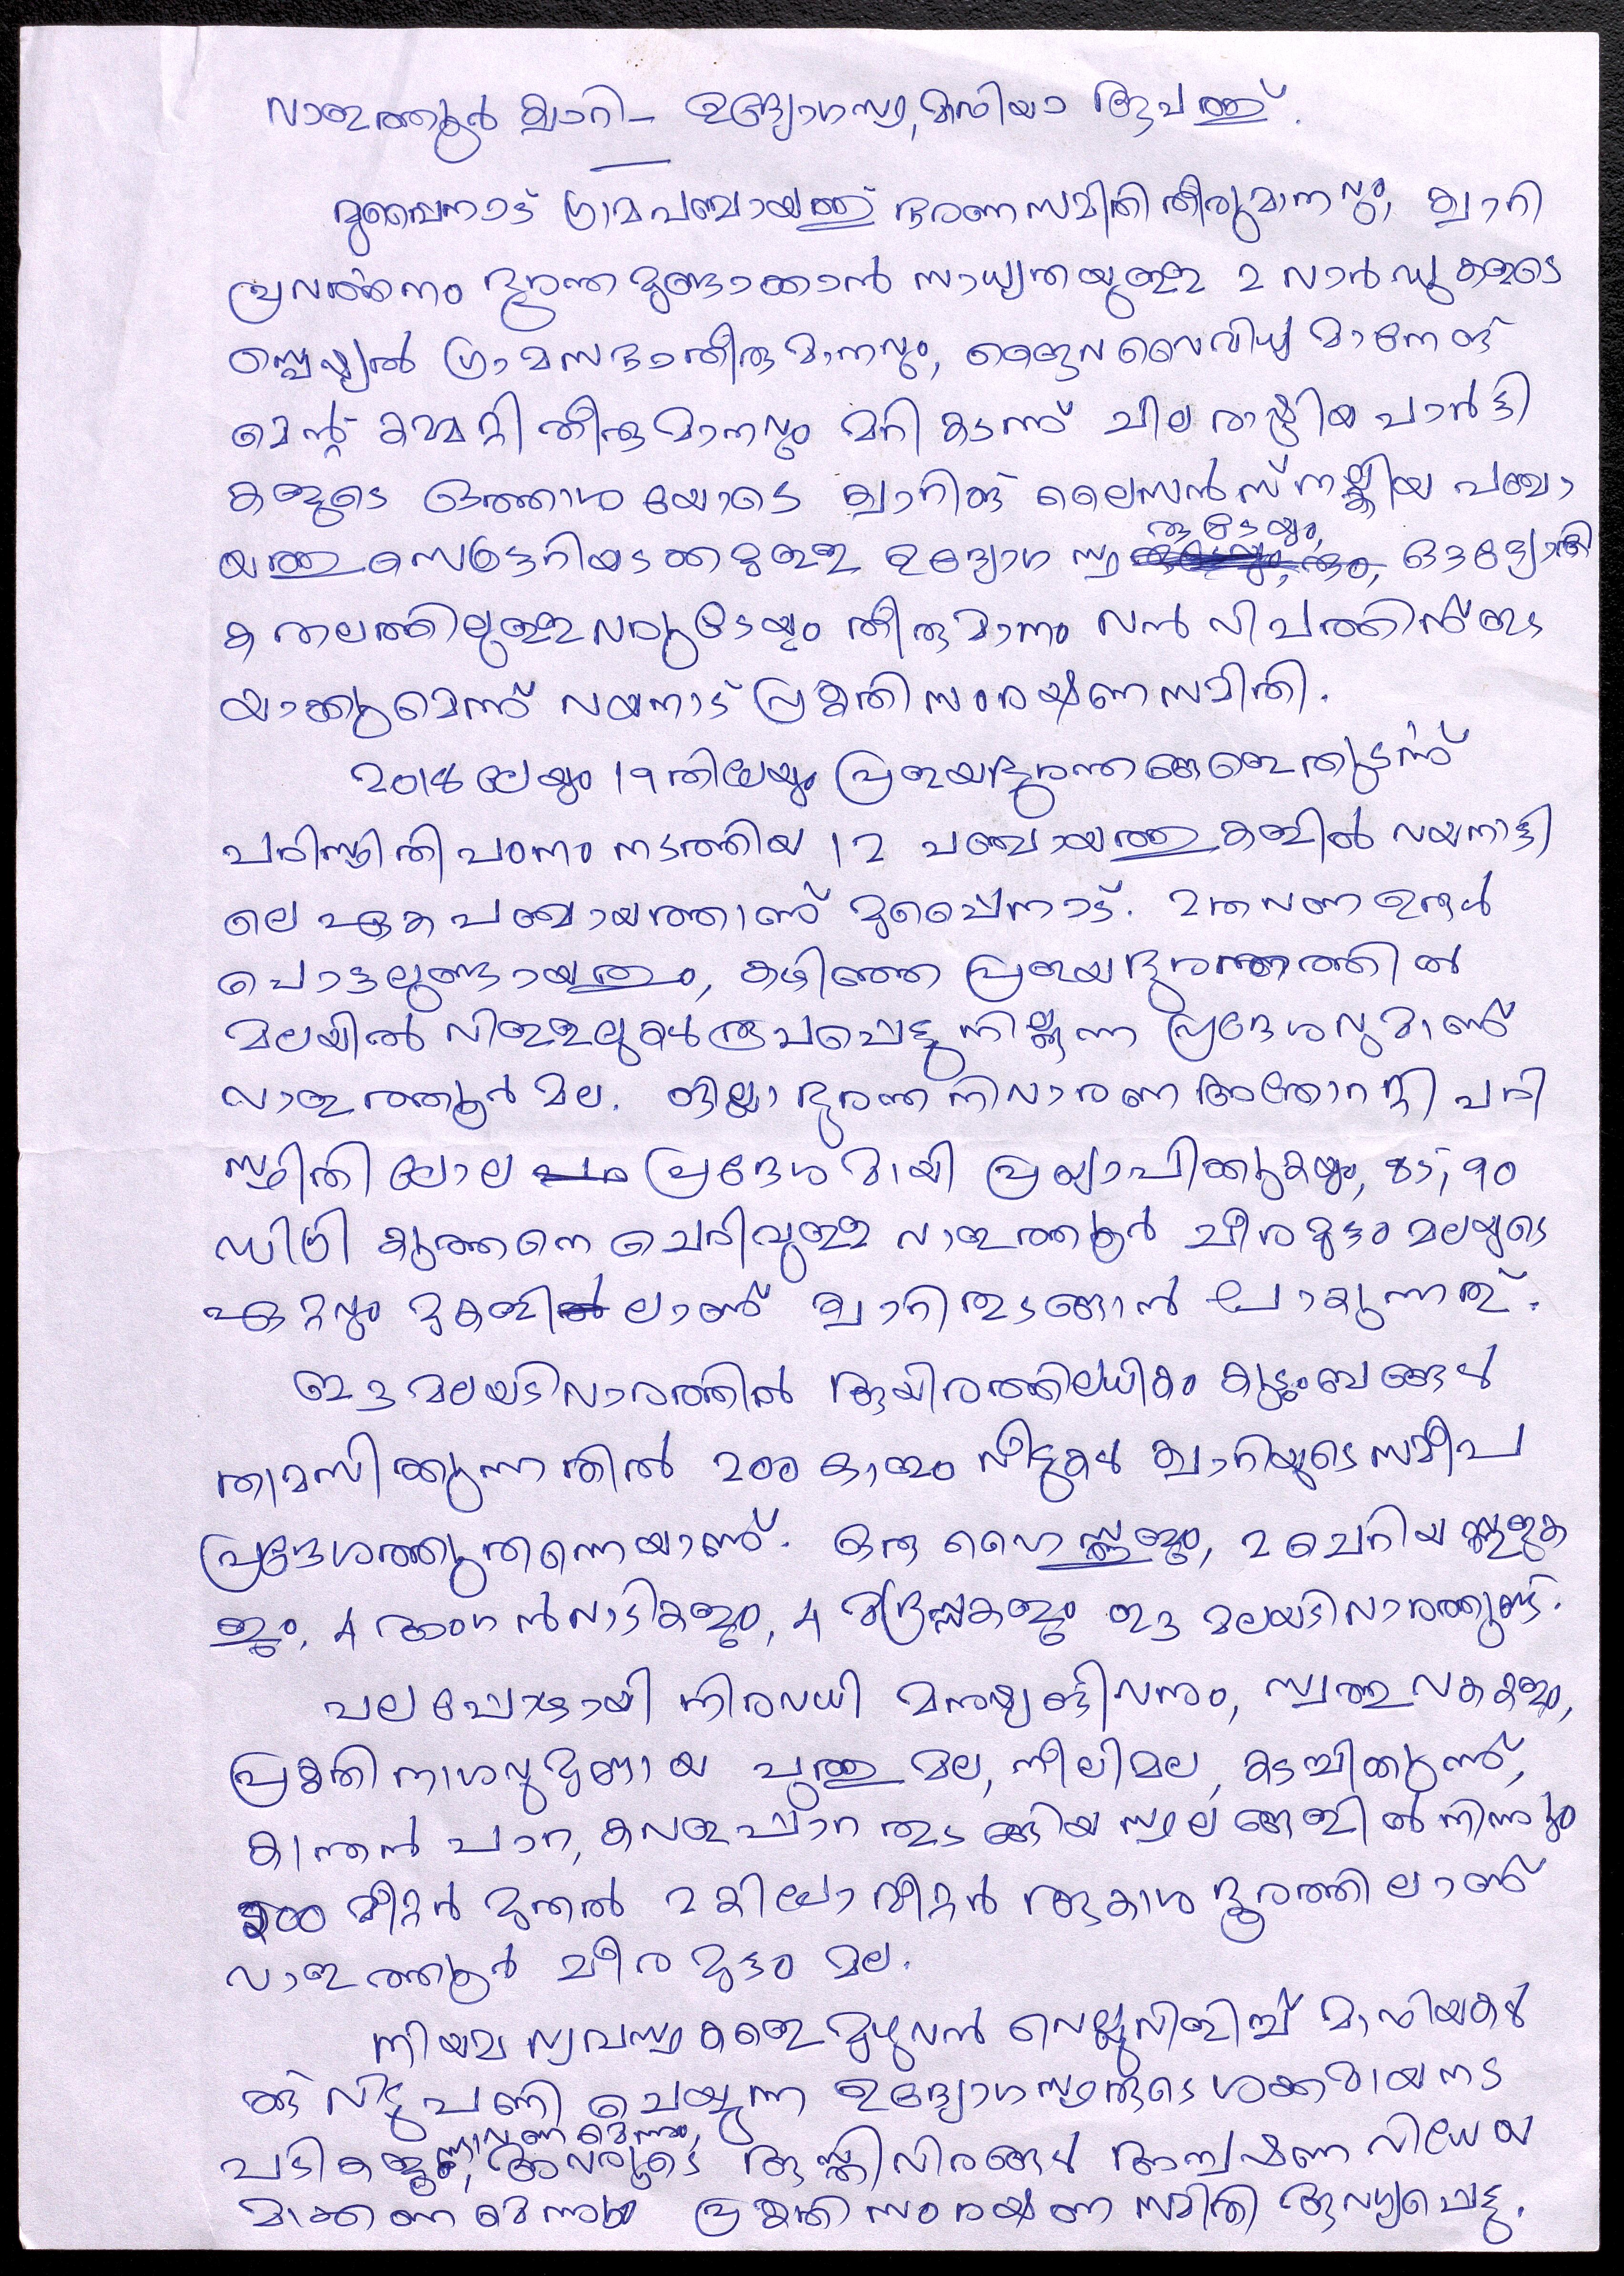 വാളത്തൂർ ക്വാറി - ഉദ്യോഗസ്ഥ, മാഫിയാ ആപത്ത്.
മൂപ്പൈനാട് ഗ്രാമപഞ്ചായത്ത് ഭരണസമിതി തീരുമാനവും, ക്വാറി
പ്രവർത്തനം ദുരന്തമുണ്ടാക്കാൻ സാധ്യതയുള്ള 2 വാർഡുകളുടെ
സ്പെഷ്യൽ ഗ്രാമസഭാതീരുമാനവും, ജൈവ വൈവിധ്യ മാനേജ്
മെന്റ് കമ്മറ്റി തീരുമാനവും മറികടന്ന് ചില രാഷ്ട്രീയ പാർട്ടി
കളുടെ ഒത്താശയോടെ ക്വാറിക്ക് ലൈസൻസ് നല്കിയ പഞ്ചാ
യത്തുസെക്രട്ടറിയടക്കമുള്ള ഉദ്യോഗസ്ഥ രുടേയും, ഔദ്യോഗി
ക തലത്തിലുള്ളവരുടേയും തീരുമാനം വൻ വിപത്തിന് ഇട
യാക്കുമെന്ന് വയനാട് പ്രകൃതിസംരക്ഷണസമിതി.
2018 ലേയും 19 തിലേയും പ്രളയദുരന്തങ്ങളെതുടർന്ന്
പരിസ്ഥിതി പഠനം നടത്തിയ 12 പഞ്ചായത്തുകളിൽ വയനാട്ടി
ലെ ഏക പഞ്ചായത്താണ് മൂപ്പൈനാട്. 2 തവണ ഉരുൾ
പൊട്ടലുണ്ടായതും, കഴിഞ്ഞ പ്രളയദുരന്തത്തിൽ
മലയിൽ വിള്ളലുകൾ രൂപപ്പെട്ടു നില്ക്കുന്ന പ്രദേശവുമാണ്
വാളത്തൂർ മല. ജില്ലാ ദുരന്തനിവാരണ അതോററ്റി പരി
സ്ഥിതി ലോല പ്രദേശമായി പ്രഖ്യാപിക്കുകയും, 85, 90
ഡിഗ്രി കുത്തനെ ചെരിവുള്ള വാളത്തൂർ ചീരമട്ടം മലയുടെ
ഏറ്റവും മുകളിലാണ് ക്വാറി തുടങ്ങാൻ പോകുന്നത്.
ഈ മലയടിവാരത്തിൽ ആയിരത്തിലധികം കുടുംബങ്ങൾ
താമസിക്കുന്നതിൽ 200 കാളം വീടുകൾ ക്വാറിയുടെ സമീപ
പ്രദേശത്തുതന്നെയാണ്. ഒരു ഹൈസ്കൂളും, 2 ചെറിയ സ്കൂളുക
ളും, 4 അംഗൻവാടികളും, 4 മദ്രസ്സകളും ഈ മലയടിവാരത്തുണ്ട്.
പലപ്പോഴായി നിരവധി മനുഷ്യജീവനും, സ്വത്തുവകകളും,
പ്രകൃതിനാശവുമുണ്ടായ പുത്തുമല, നീലിമല, കടച്ചിക്കുന്ന്,
കാന്തൻ പാറ, കവളപ്പാറ തുടങ്ങിയ സ്ഥലങ്ങളിൽ നിന്നും
മീറ്റർ മുതൽ 2 കിലോ മീറ്റർ ആകാശ ദൂരത്തിലാണ്
വാളത്തൂർ ചീരമട്ടം മല.
നിയമവ്യവസ്ഥകളെ മുഴുവൻ വെല്ലുവിളിച്ച് മാഫിയകൾ
ക്ക് വിടുപണി ചെയ്യുന്ന ഉദ്യോഗസ്ഥരുടെ ശക്തമായ നട
പടികളുണ്ടാവണമെന്നും, അവരുടെ ആസ്തിവിരങ്ങൾ അന്വേഷണ വിധേയ
മാക്കണമെന്നും പ്രകൃതി സംരക്ഷണ സമിതി ആവശ്യപ്പെട്ടു.